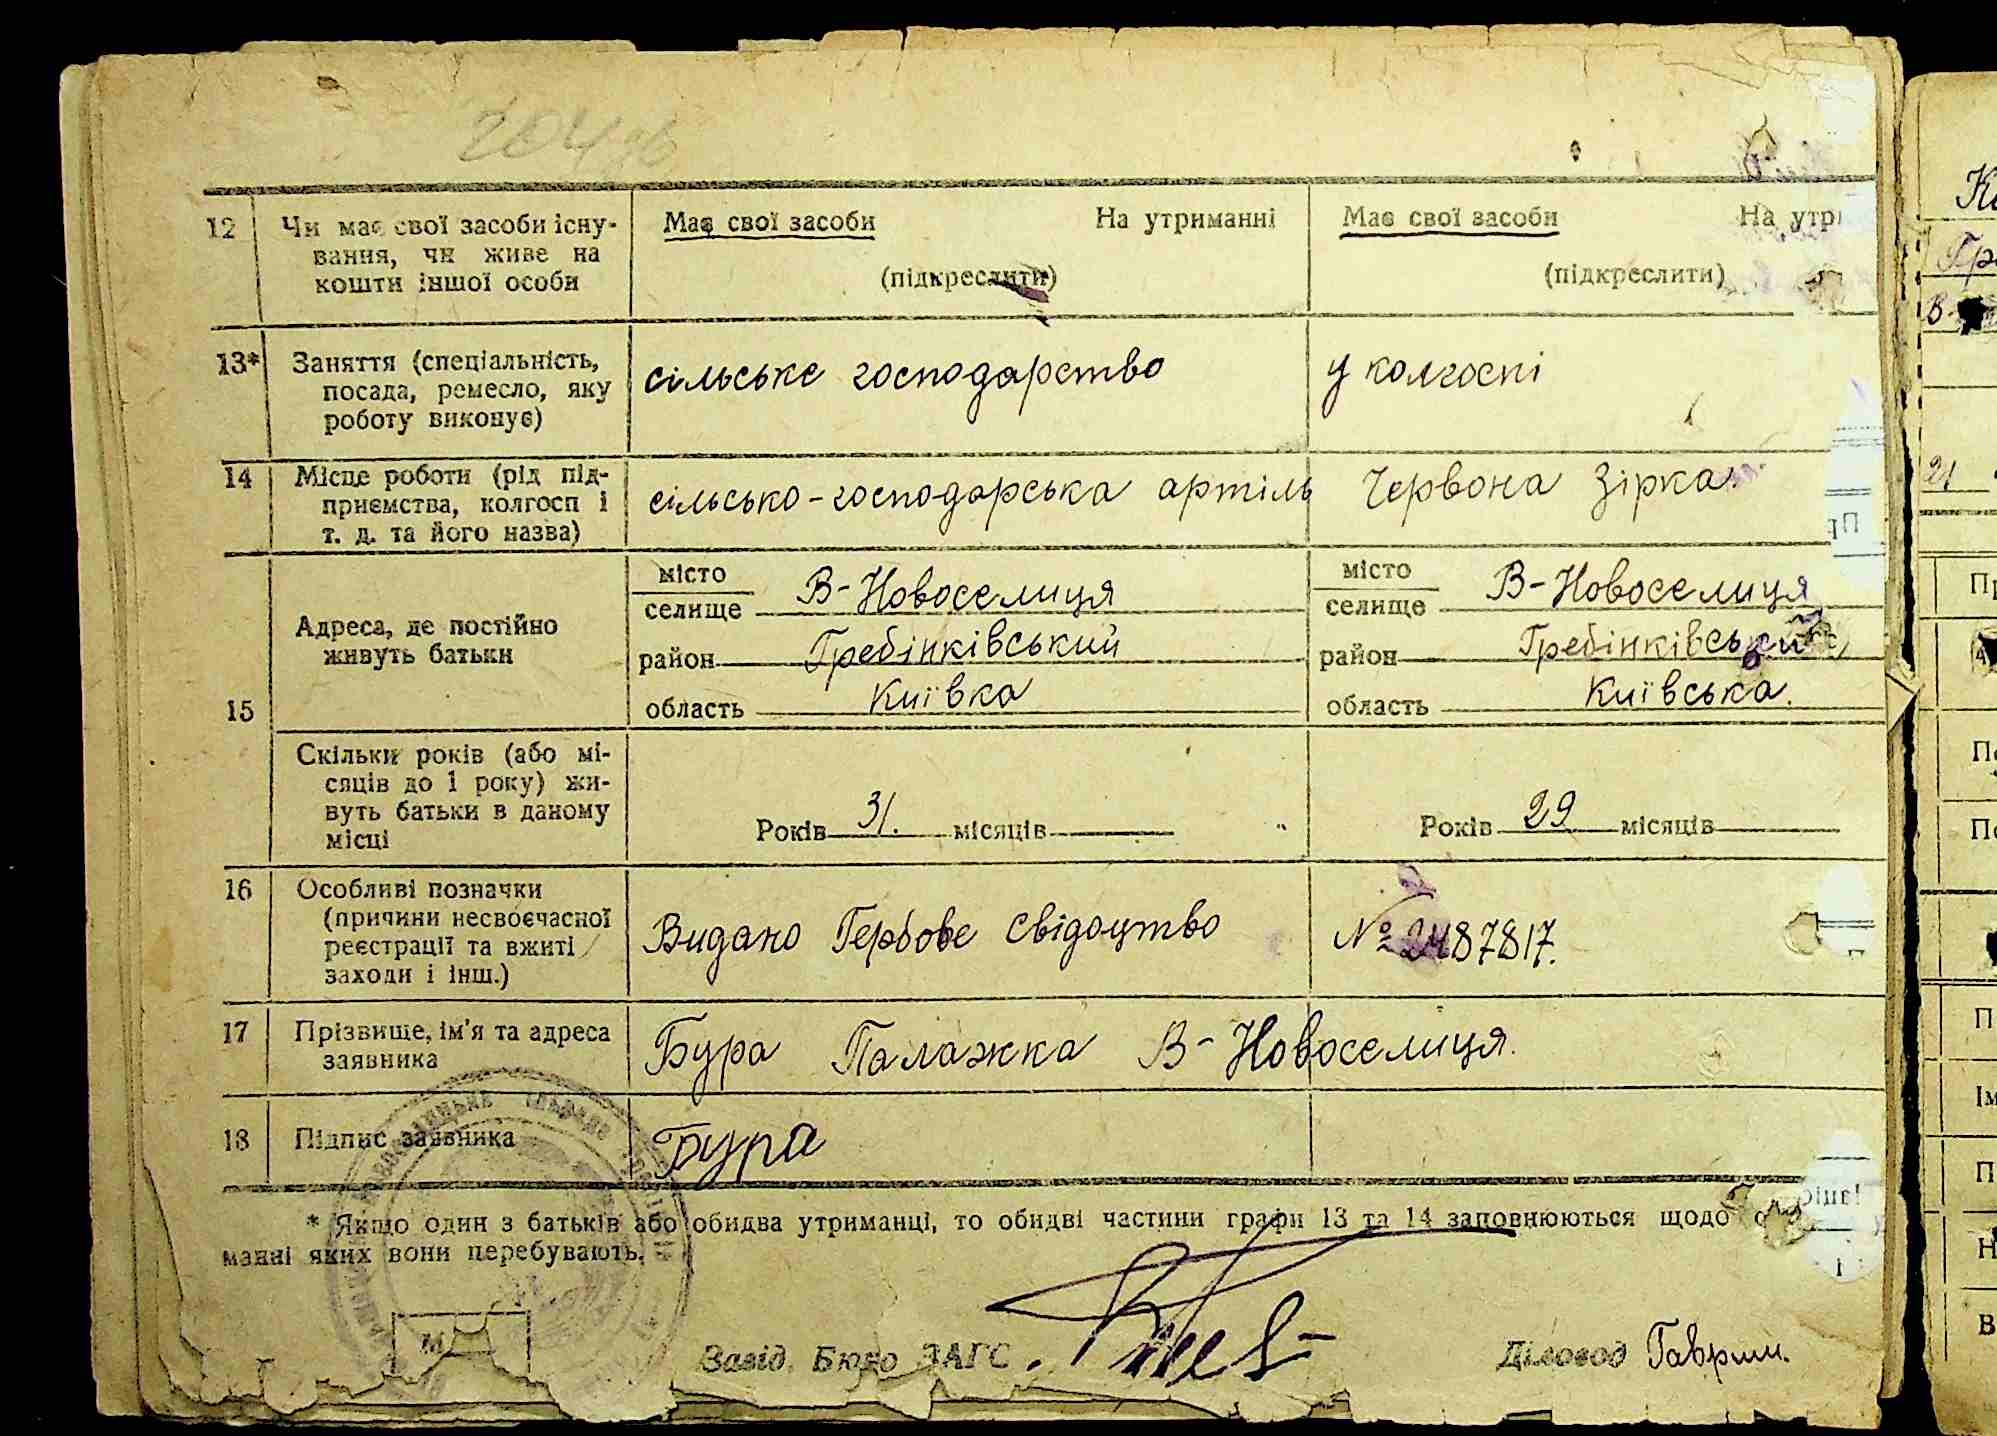 204зв
12 Чи має свої засоби існу-
вання, чи живе на
кошти іншої особи
Має свої засоби На утриманні
(підкреслити)
Має свої засоби На утри
(підкреслити)
13* Заняття (спеціальність,
посада, ремесло, яку
роботу виконує)
сільське господарство
у колгоспі
14 Місце роботи (рід під-
приємства, колгосп і
т. д. та його назва)
сільсько-господарська артіль Червона Зірка.
15 Адреса, де постійно
живуть батьки
місто
селище В-Новоселиця
район Гребінківський
область Київка
місто
селище В-Новоселиця
район Гребінківський
область Київська.
Скільки років (або мі-
сяців до 1 року) жи-
вуть батьки в даному
місці
Років 31. місяців
Років 29 місяців
16 Особливі позначки
(причини несвоєчасної
реєстрації та вжиті
заходи і інш.)
Видано Гербове свідоцтво № 2487817.
17 Прізвище, ім'я та адреса
заявника
Бура Палажка В-Новоселиця.
18 Підпис заявника
Бура
* Якщо один з батьків або обидва утриманці, то обидві частини графи 13 та 14 заповнюються щодо
манні яких вони перебувають.
Завід. Бюро ЗАГС
Діловод Гаврши.